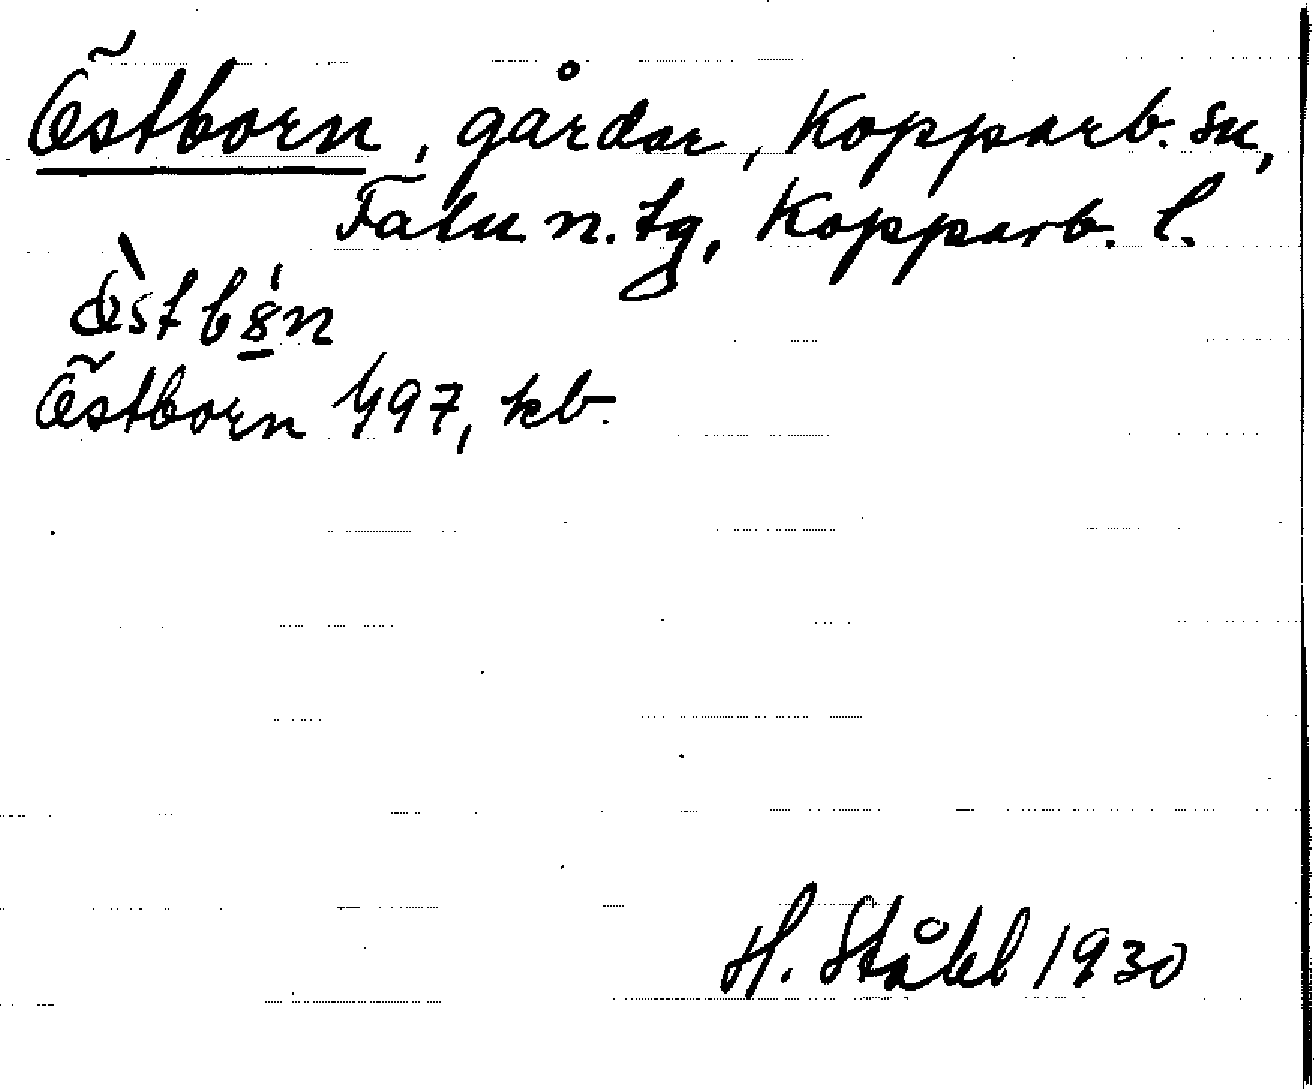 Östborn, gårdar, Kopparb. sn,
Falu n. tg, Kopparb. l.
Östborn 497, kb.
H. Ståhl 1930